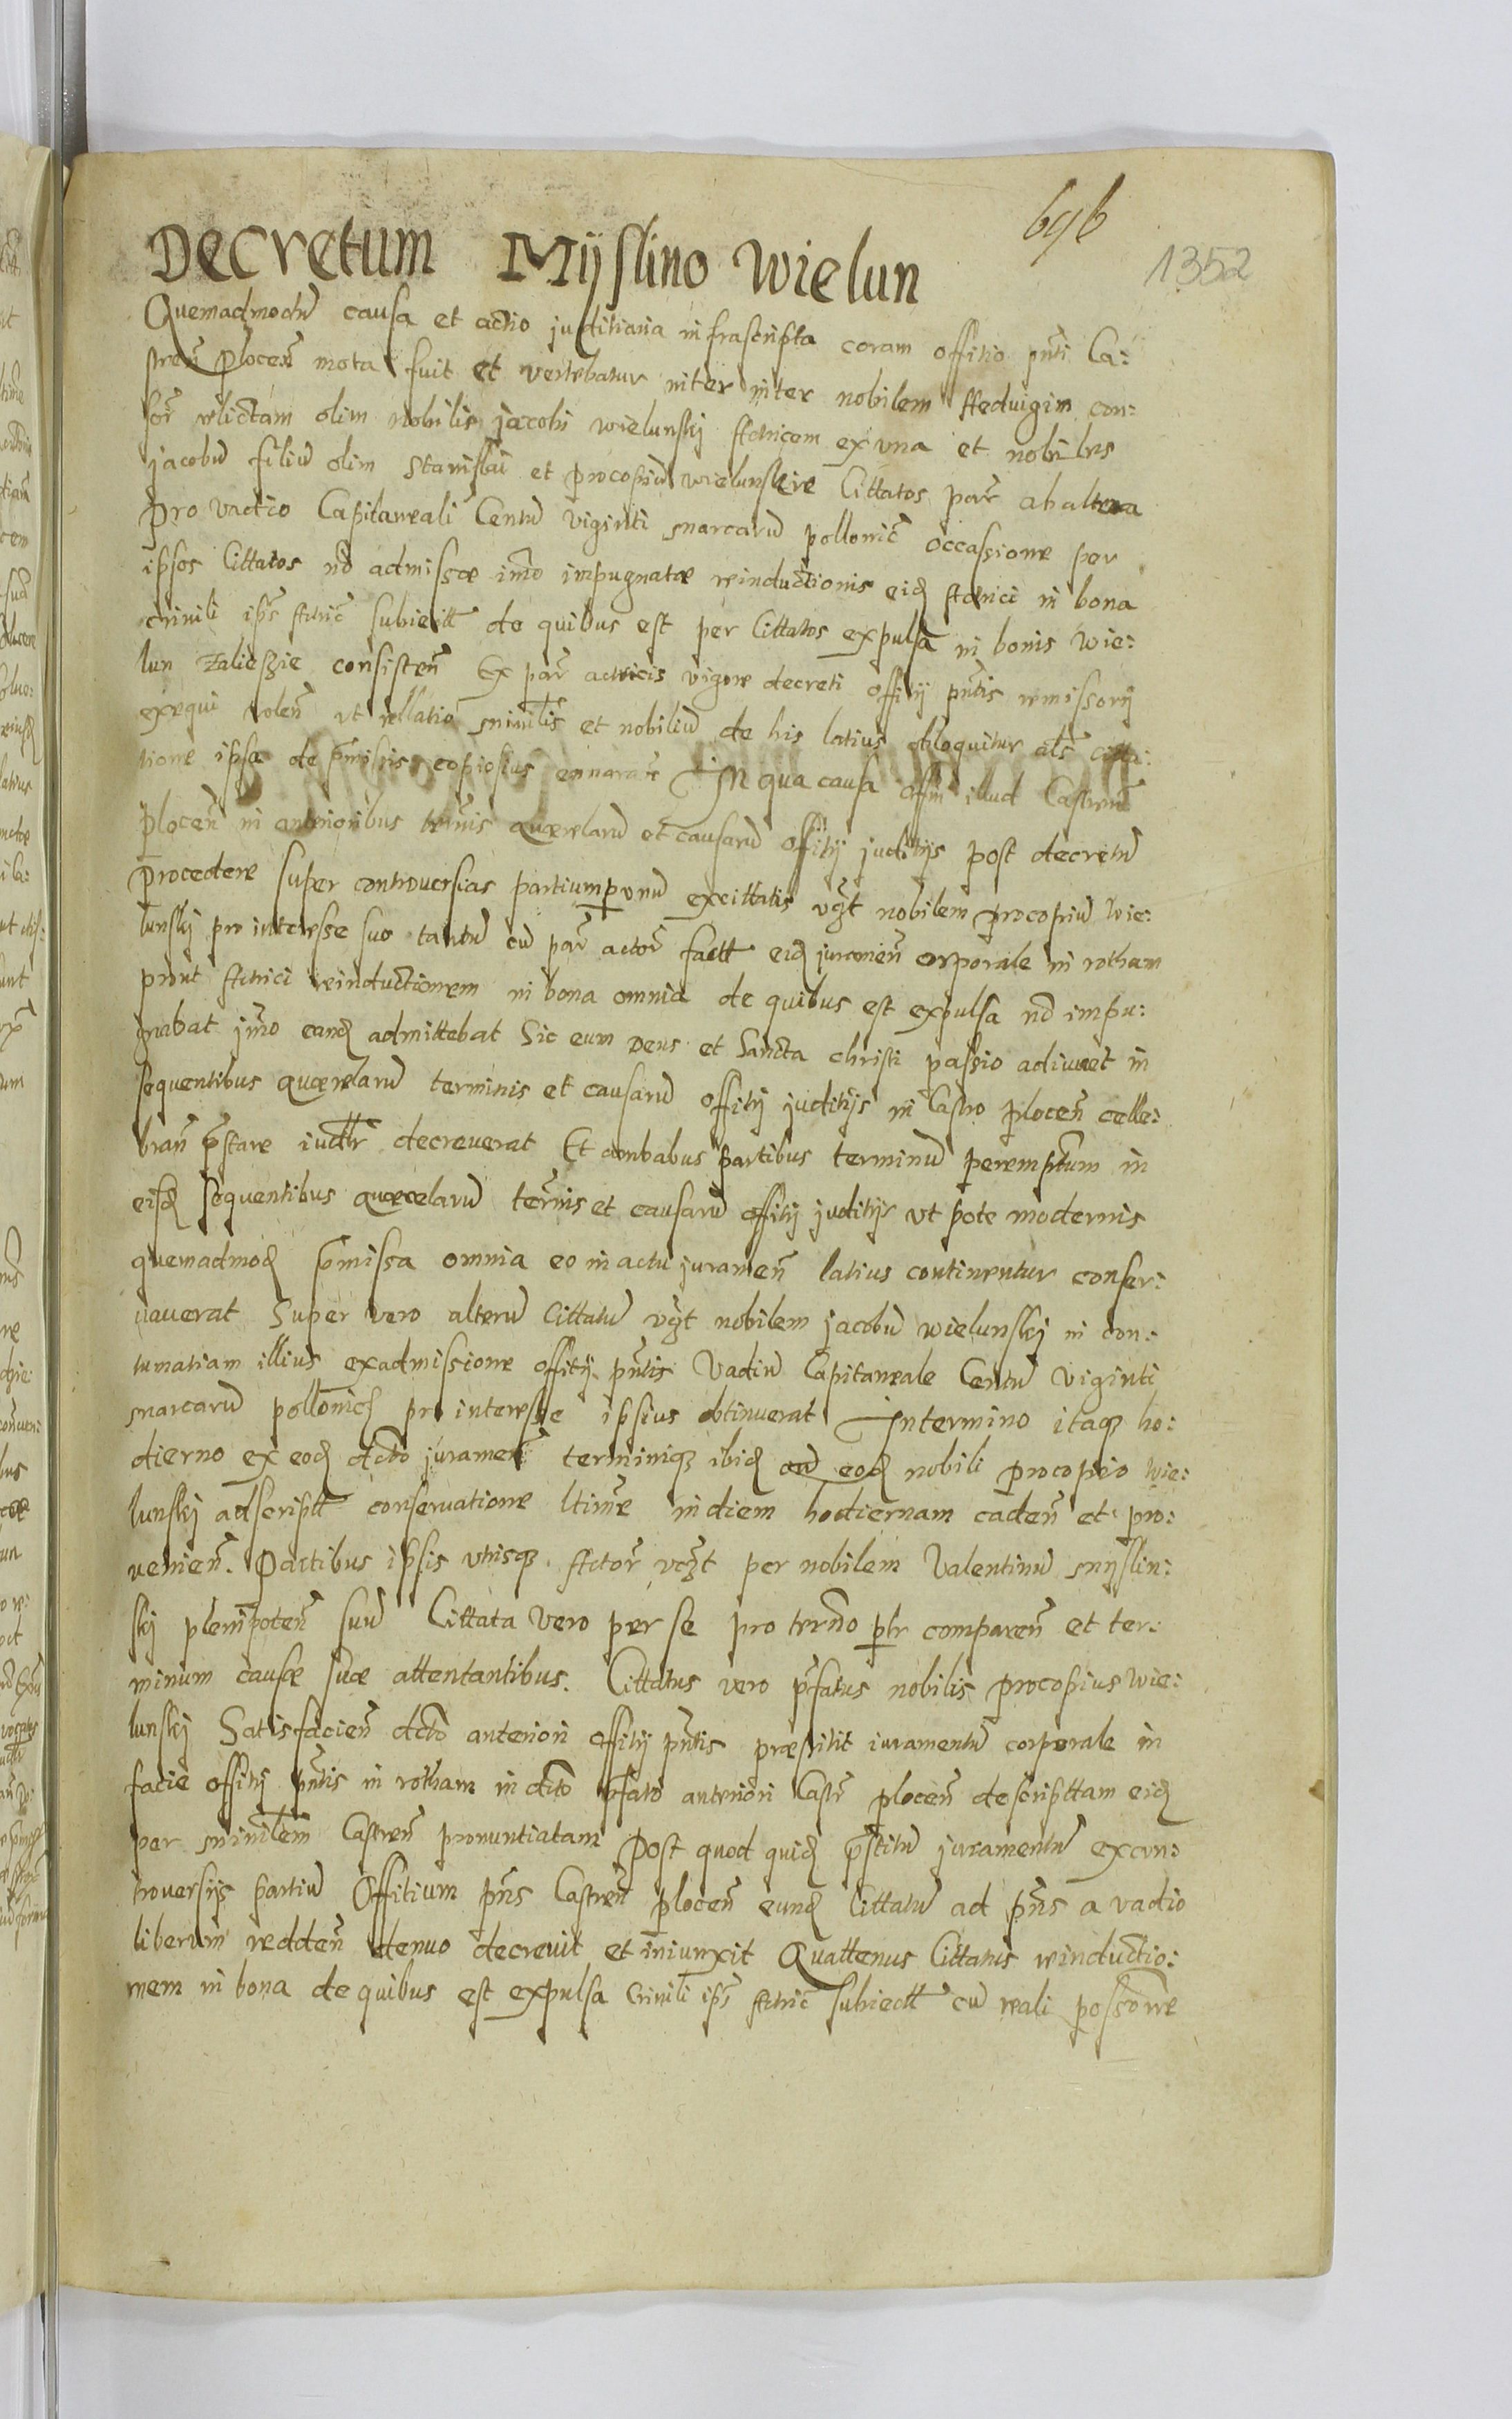 696
1352
Decretum Mÿslino Wielun
Quemadmodū causa et actio juditiaria infrascripta coram offitio pn̄ti Ca:
stren̄ Plocen̄ mota fuit et vertebatur inter inter nobilem Heduigim con:
relictam olim nobilis jacobi wielunskj Actricem ex vna et nobiles
jacobū filiū olim Stanislai et procopiū wielunskie Cittatos par̄ ab altera
Pro vadio Capitaneali Centū viginti marcarū pollonic̄ occassione per
ipsos Cittatos nō admissæ im̄o impugnatæ reinductionis eid̄ Actrici in bona
crinili ips̄ Actric̄ subiectt̄ de quibus est per Cittatos expulsa in bonis Wie:
lun Zalieszie consisten̄ Ex par̄ actricis vigore decreti offitij pn̄tis remissorij
exequi volen̄ vt rellatio minīlis et nobiliū de his latius obloquitur al̄s citta:
tione ipsa de p̄missis copiosius ennarat̄ In qua causa Offm̄ illud Castren̄
plocen̄ in anterioribus term̄is quærelarū et causarū offitij juditijs post decretū
procedere super controuersias partium p̱ vnū excittatis vꝫt nobilem procopiū Wie:
lunskj pro interesse suo tantū cū par̄ actor̄ factt̄ eid̄ juramen̄ corporale in rotham
prout Actrici reinductionem in bona omnia de quibus est expulsa nō impu:
gnabat jm̄o eand̄ admittebat Sic eum Deus et Sancta christi passio adiuuet in
sequentibus quærelarū terminis et causarū offitij juditijs in Castro plocen̄ celle:
bran̄ p̄stare decreuerat Et ambabus partibus terminū peremptum in
eisd̄ sequentibus quærelarū term̄is et causarū offitij juditijs vt pote modernis
quemadmod̄ p̄missa omnia eo in actu juramen̄ latius continentur conser:
uauerat Super vero alterū Cittatū vꝫt nobilem jacobū wielunskj in con:
tumatiam illius ex admissione offitij pn̄tis Vadiū Capitaneale Centū viginti
marcarū pollonic̄ pro interesse ipsius obtinuerat In termino itaqꝫ ho:
dierno ex eod̄ dcto juramen̄ terminiqꝫ ibid̄ cū eod̄ nobili procopio Wie:
lunskj adscriptt̄ conseruatione ltim̄e in diem hodiernam caden̄ et pro:
uenien̄. Partibus ipsis vtrisqꝫ Actor̄ vꝫt per nobilem Valentinū mÿslin:
skj plenipoten̄ suū Cittata vero per se pro term̄o ptr̄ comparen̄ et ter:
minum causæ suæ attentantibus. Cittatus vero p̄fatus nobilis procopius Wie:
lunskj Satisfacien̄ dcto anteriori offitij pn̄tis præstitit iuramentū corporale in
facie offitij pn̄tis in rotham in dcto p̄fato anteriori Castr̄ plocen̄ descripttam eid̄
per minīlem Castren̄ pronuntiatam Post quod quid̄ p̄stitū juramentū ex con:
trouersijs partiū Offitium pn̄s Castren̄ plocen̄ eund̄ Cittatū ad pn̄s a vadio
liberum redden̄ denuo decreuit et iniunxit Quattenus Cittatus reinductio:
nem in bona de quibus est expulsa Crinili ips̄ Actric̄ subiectt̄ cū reali possone